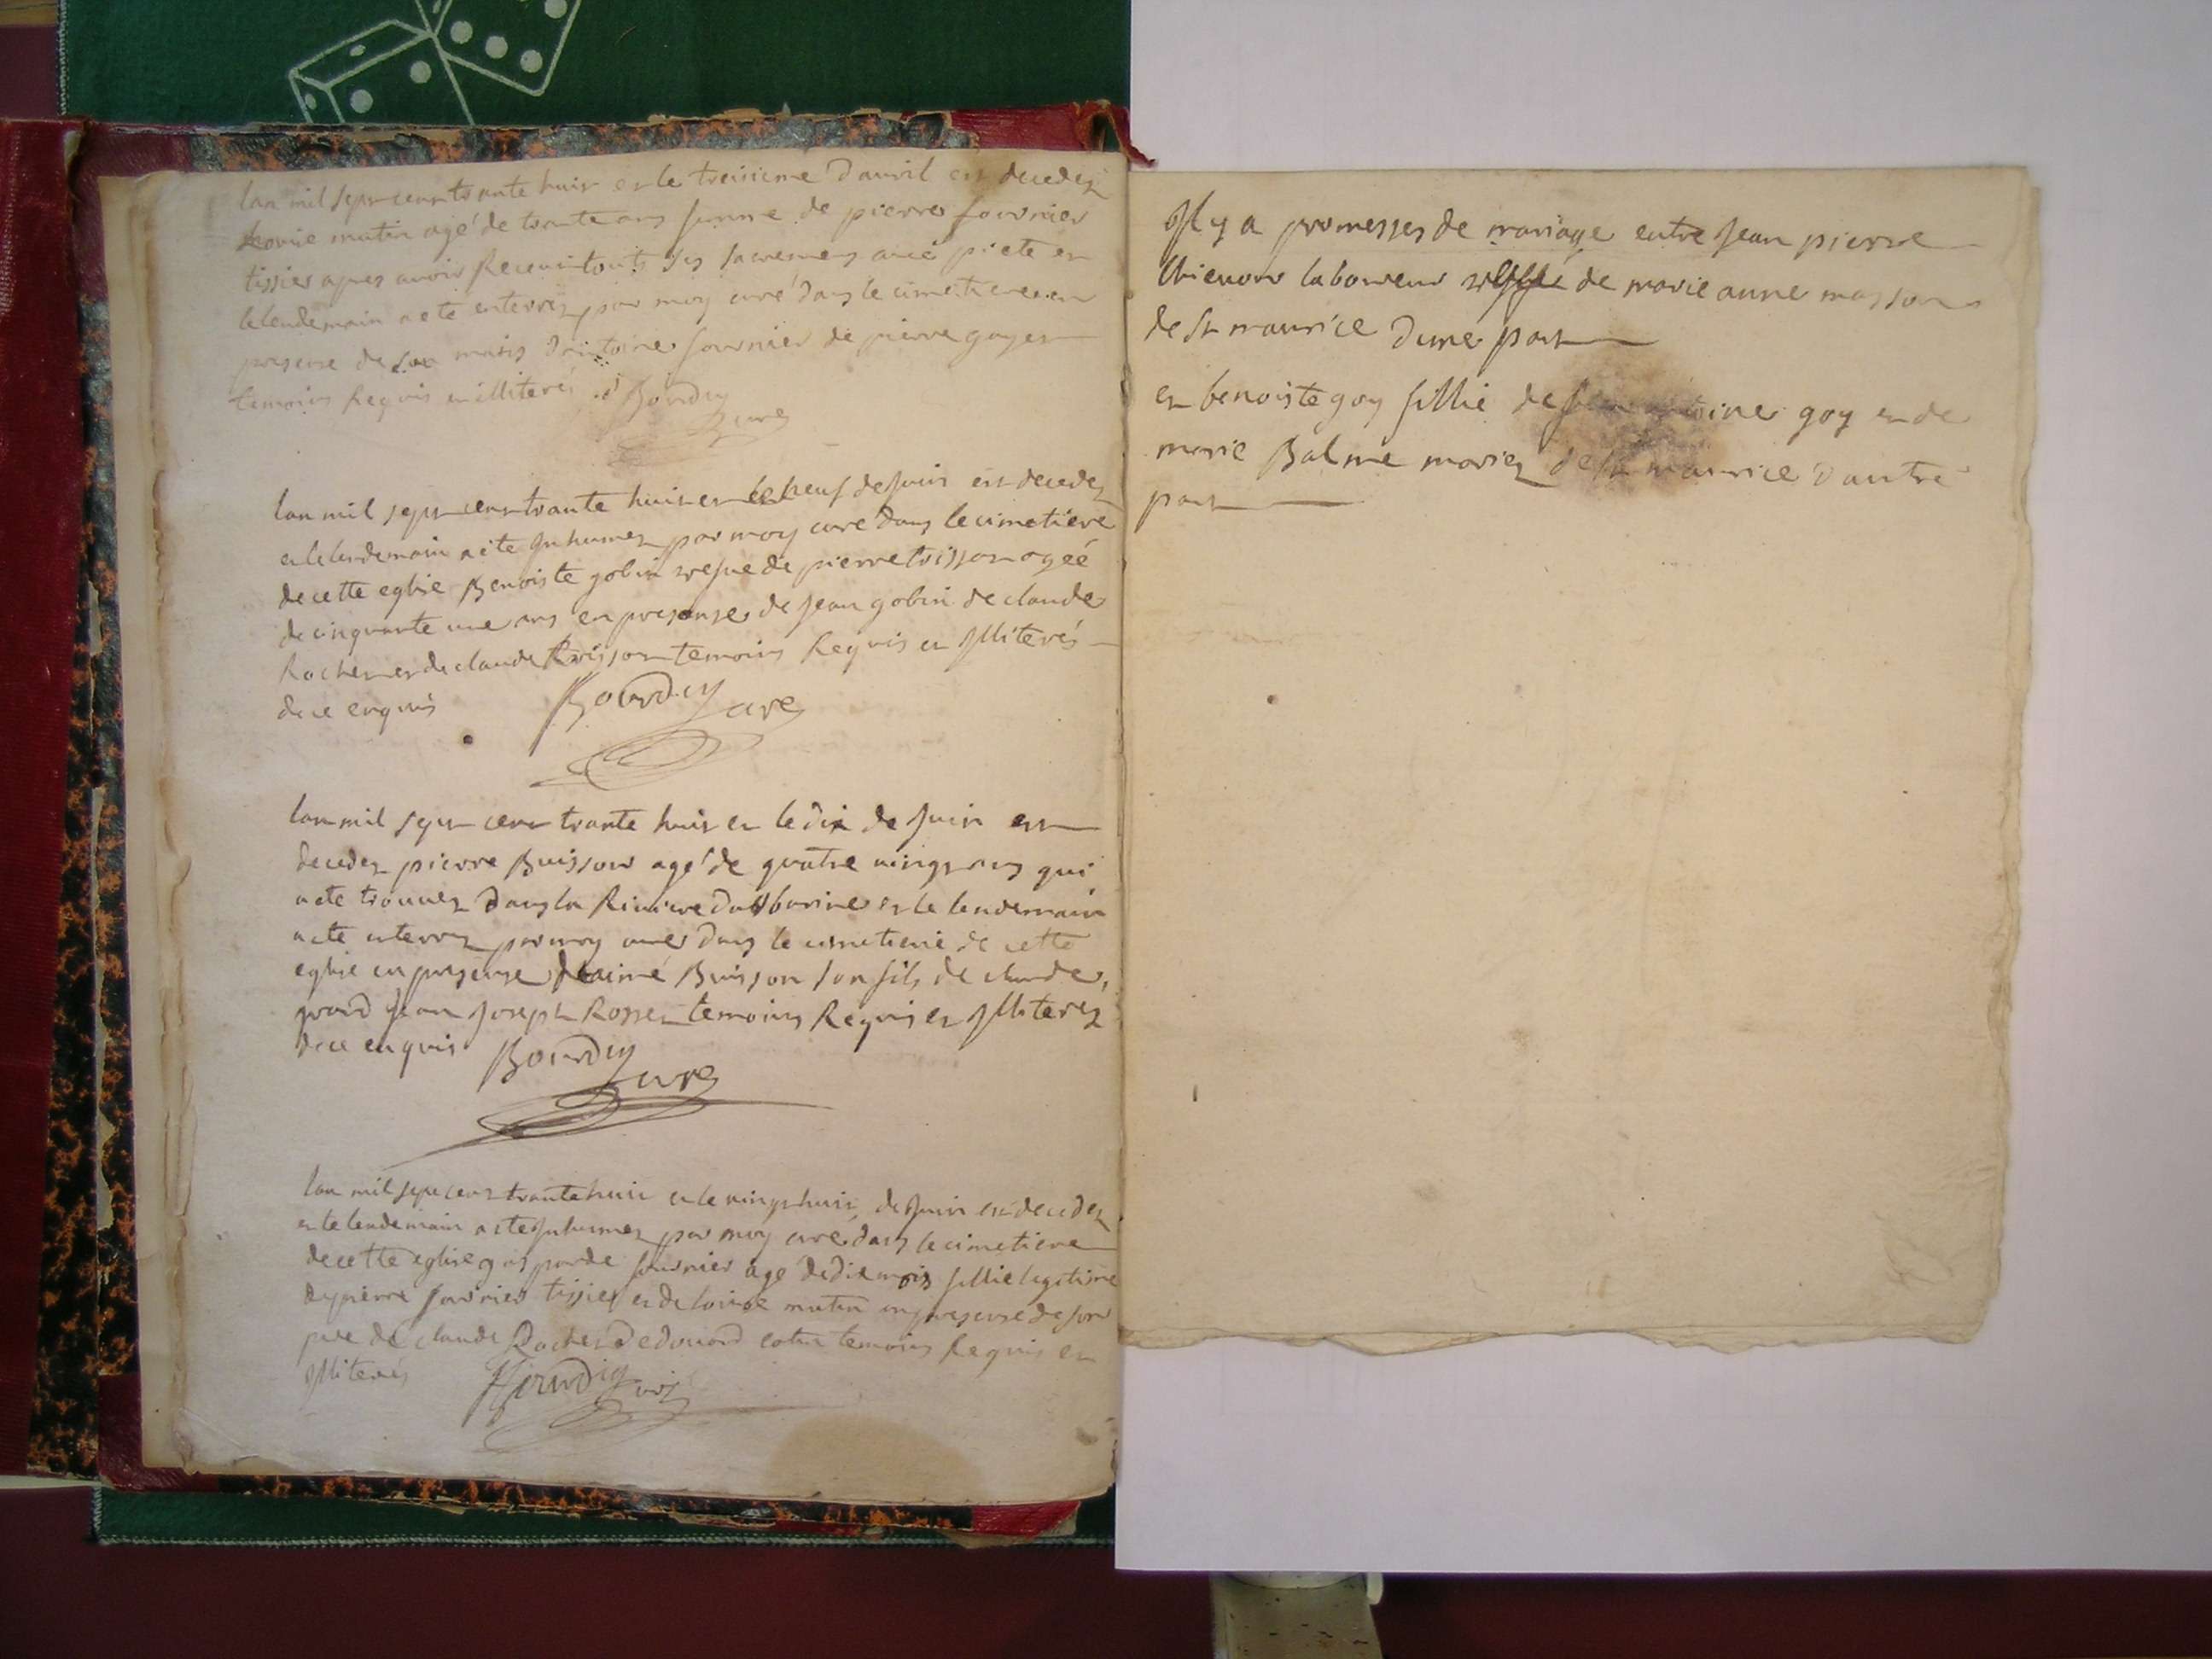 lan mil sept cent trante huit et le treisieme d'auril est decedez
matin agé de trante ans femme de pierre fournier
tissier apres auoir Receu tonts ses sacremens auec piete et
le lendemain a ete enterrez par moy curé dans le cimetiere en
presence de son maris d'antoine fournier de pierre goyet
temoins Requis et illiterés Bourdin
curé
lan mil sept cent trante huit et le neuf de Juin est decedez
et le lendemain a ete Inhumez par moy curé dans le cimetiere
de cette eglise Benoiste gobin vefue de pierre trisson agéé
de cinquante une ans en presense de Jean gobin de claude
Rochet et de claude trisson temoins Requis et Illiterés
de ce enquis Bourdin curé
lan mil sept cent trante huit et le dix de Juin est
decedez pierre Buisson agé de quatre uingt ans qui
a ete trouuez dans la Riuiere et le lendemain
a ete enterrez par moy curé dans le cimetiere de cette
eglise en presense d'aimé Buisson son fils de claude
Jean Joseph Rosset temoins Requis et Illiterez
de ce enquis Bourdin
curé
lan mil sept cent trante huit et le uingt huit de Juin est decedez
et le lendemain a ete Inhumez par moy curé dans le cimetiere
de cette eglise gasparde fournier agé de dix mois fillie legitime
de pierre fournier tissier et de matin en presense de son
pere de claude Rochet d'edouard temoins Requis et
Illiterés Bourdin curé
Il y a promesses de mariage entre Jean pierre
laboureur de marie anne masson
de st maurice d'une part
et benoiste goy fillie de Jean antoine goy et de
marie Balme mariez de st maurice d'autre
part